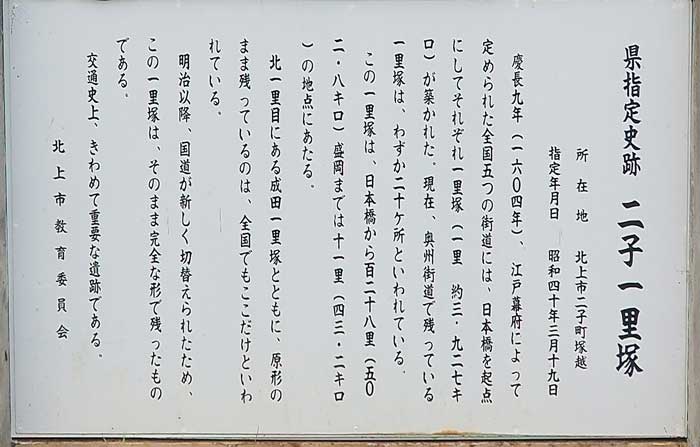 県指定史跡 二子一里塚
所在地 北上市二子町塚越
指定年月日 昭和四十年三月十九日
慶長九年(一六〇四年)、江戸幕府によって
定められた全国五つの街道には、日本橋を起点
にしてそれぞれ一里塚(一里 約三・九二七キ
ロ)が築かれた。現在、奥州街道で残っている
一里塚は、わずか二十ヶ所といわれている。
この一里塚は、日本橋から百二十八里(五〇
二・八キロ)盛岡までは十一里(四三・二キロ
)の地点にあたる。
北一里目にある成田一里塚とともに、原形の
まま残っているのは、全国でもここだけといわ
れている。
明治以降、国道が新しく切替えられたため、
この一里塚は、そのまま完全な形で残ったもの
である。
交通史上、きわめて重要な遺跡である。
北上市教育委員会